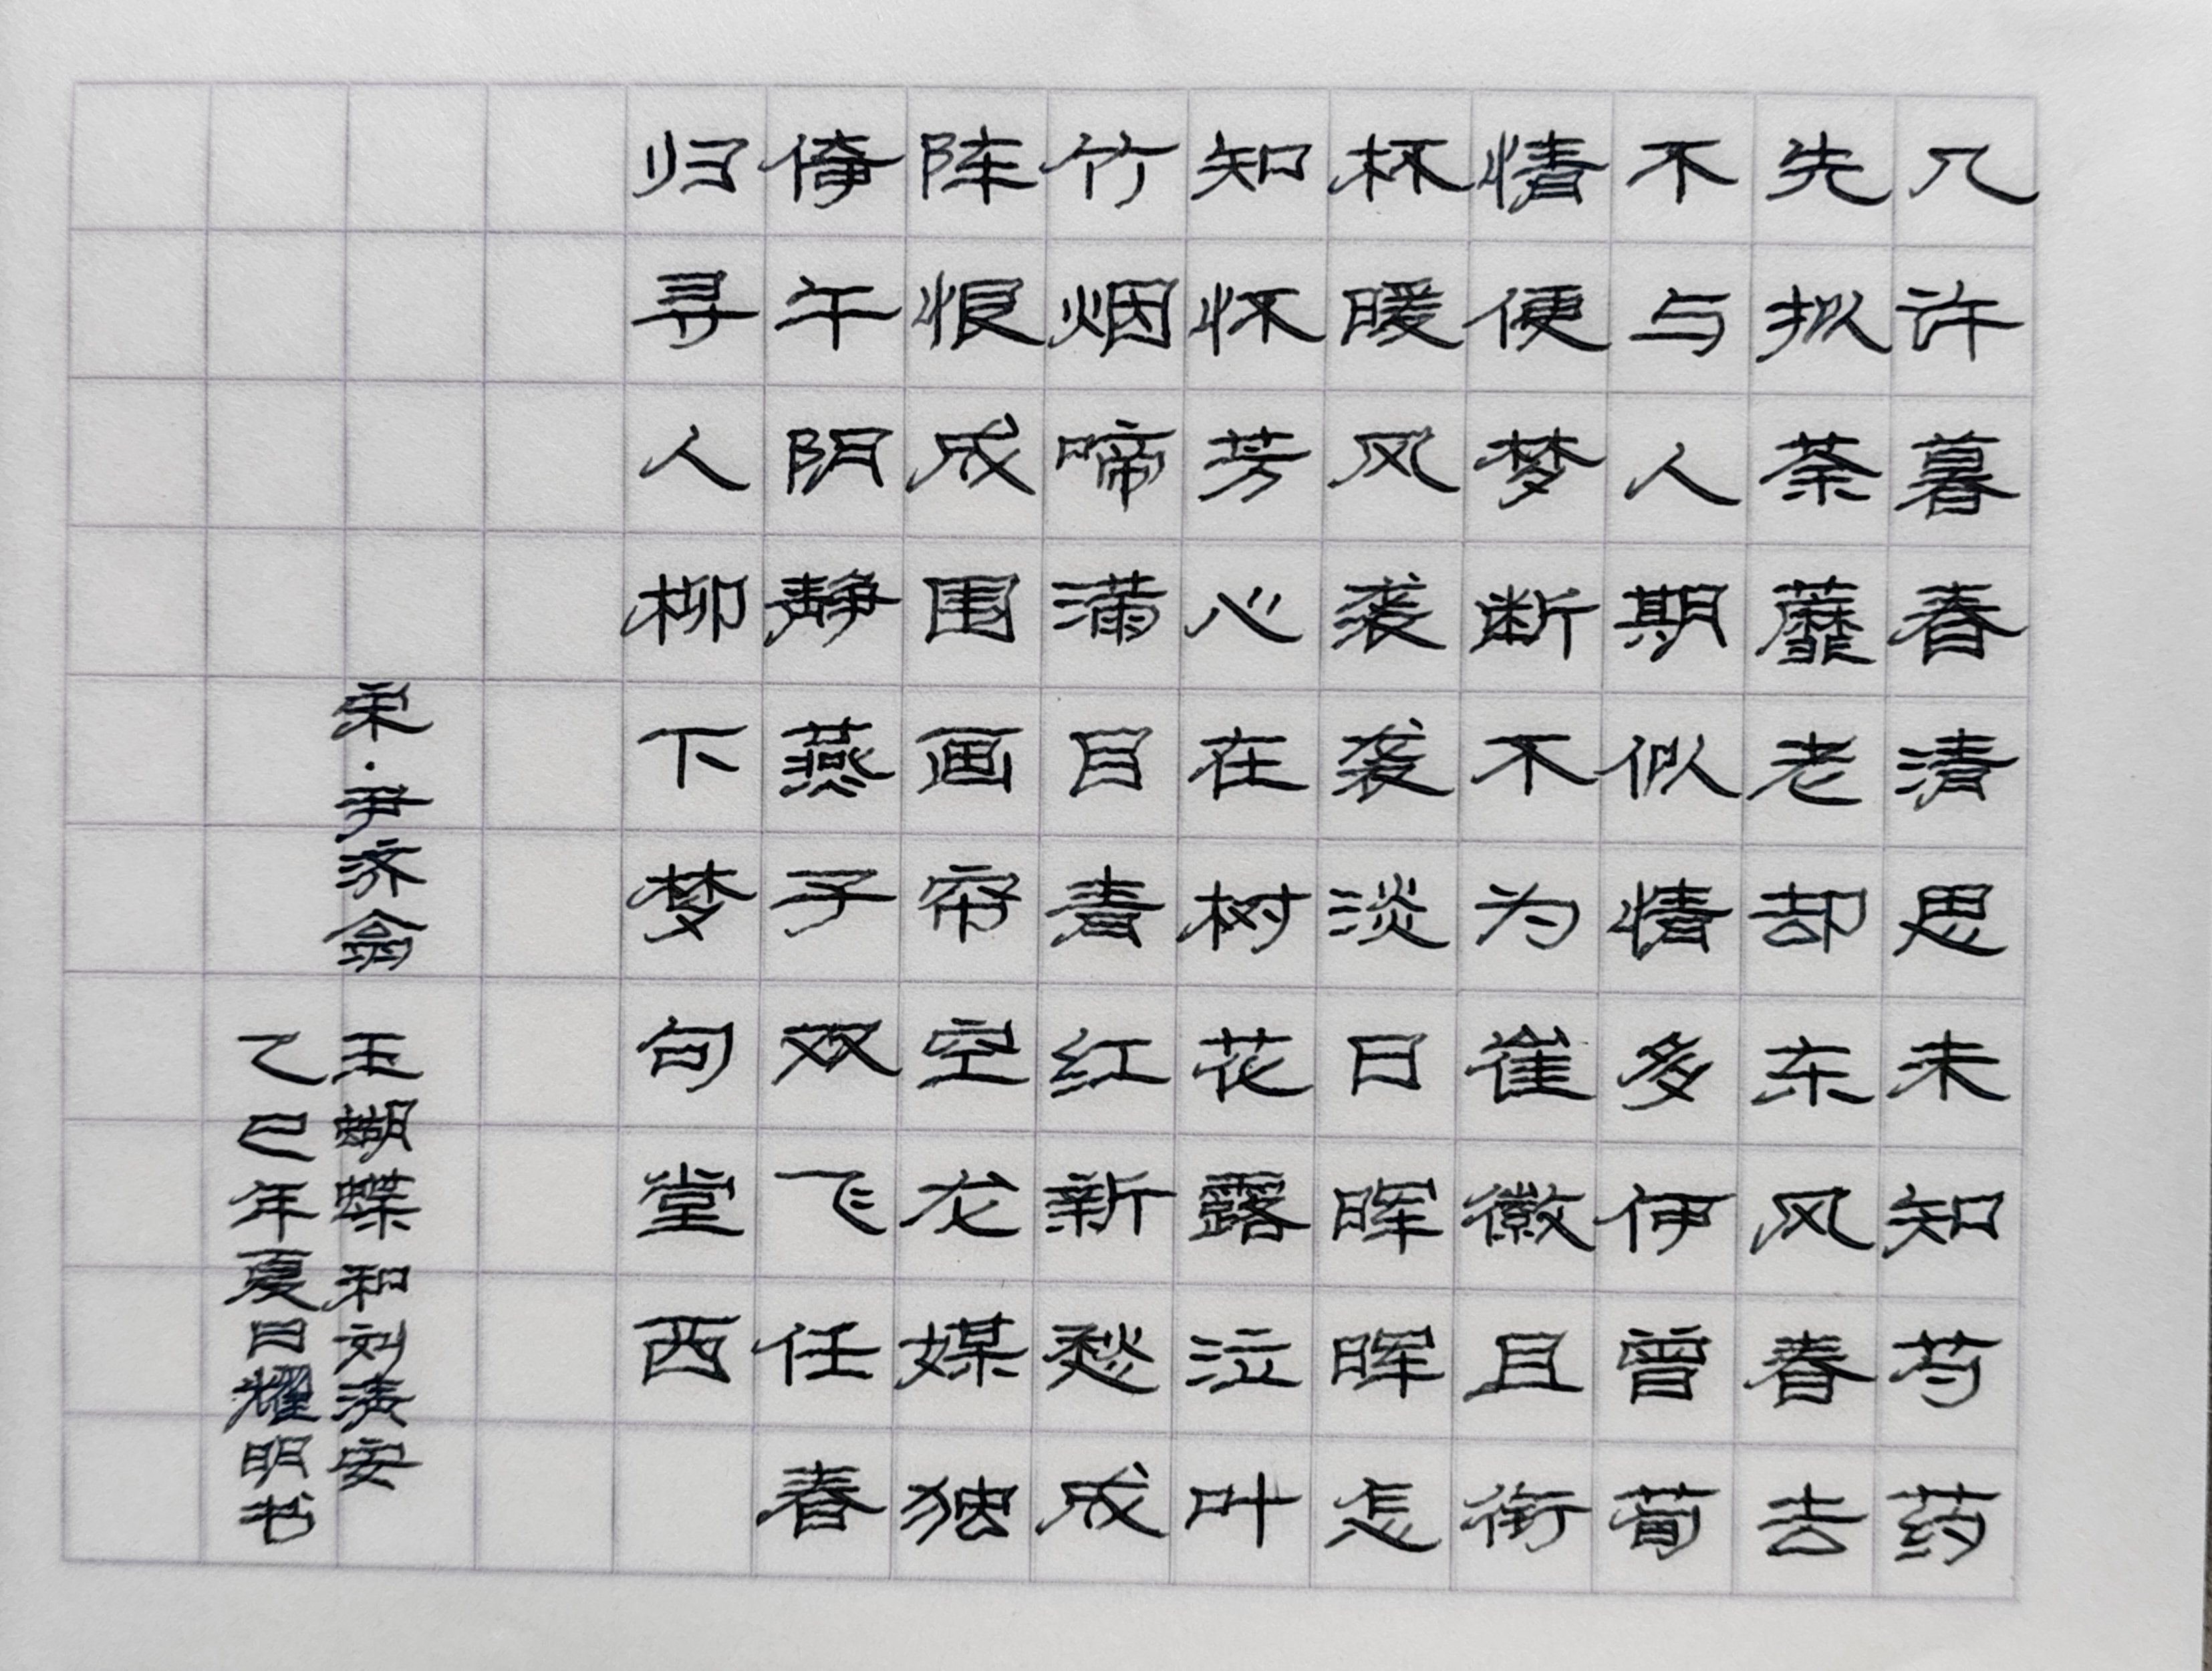 几许暮春清思未知芍药
先拟荼蘼老却东风春去
不与人期似情多伊曾荀
情便梦断不为崔徽且衔
杯暖风袭袭淡日晖晖怎
知怀芳心在树花露泣叶
竹烟啼满目青红新愁成
阵恨成围画帘空龙媒独
倚午阴静燕子双飞任春
归寻人柳下梦句堂西
宋·尹济翁 玉蝴蝶和刘清安
乙巳年夏日耀明书